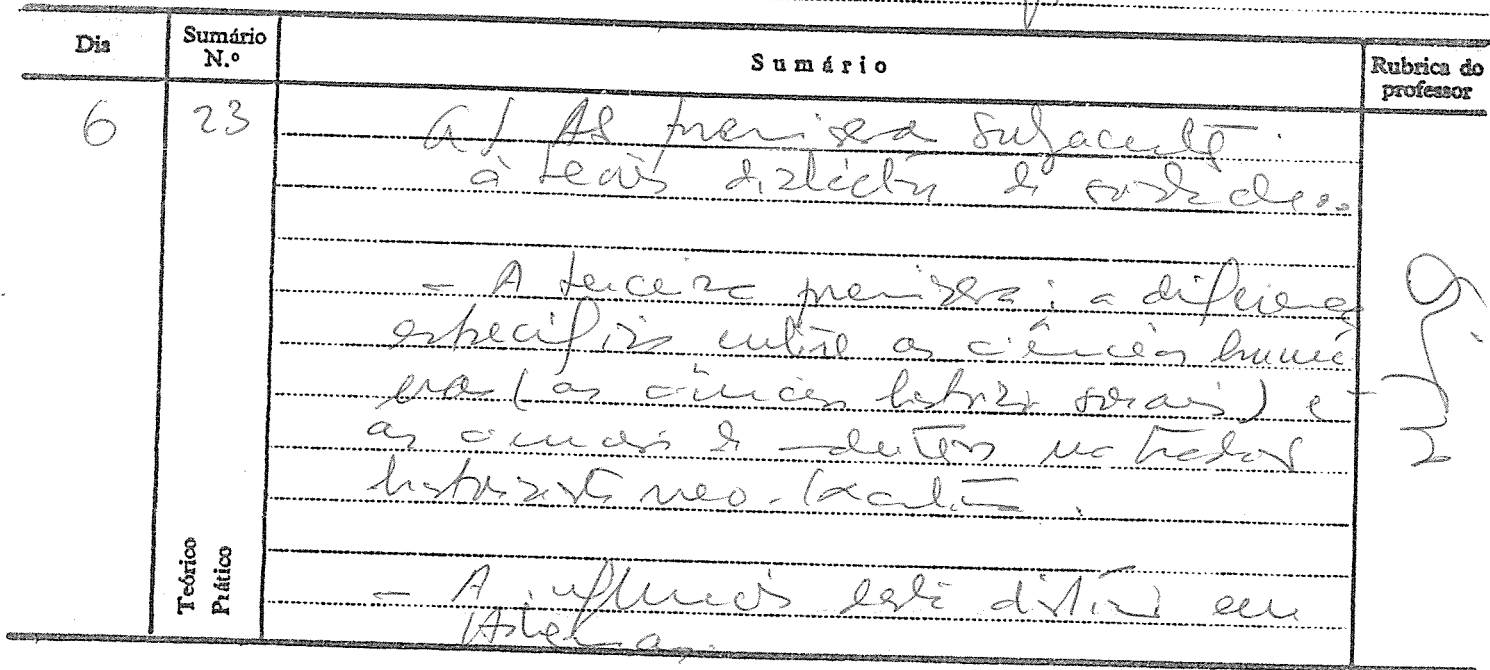 Dia Sumário N.º Sumário Rubrica do professor
6 23 a) As premissas subjacentes
à teoria dialéctica da sociedade..
- A terceira premissa: a diferença
específica entre as ciências huma
nas (as ciências histórico sociais) e
as ciências da natureza na tradição
historicista neo-kantiana.
Teórico
Prático
- A influência desta distinção em